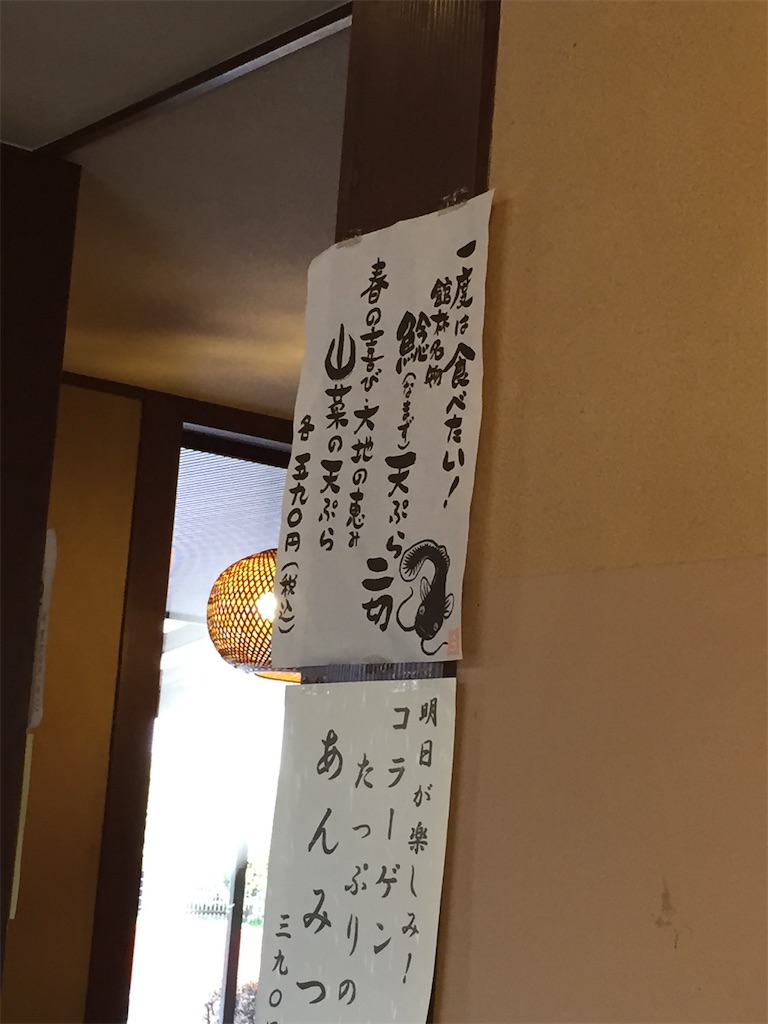 一度は食べたい!
館林名物
鯰(なまず)天ぷら
二切
春の喜び・大地の恵み
山菜の天ぷら
各五九〇円(税込)
明日が楽しみ!
コラーゲン
たっぷりの
あんみつ
三九〇円